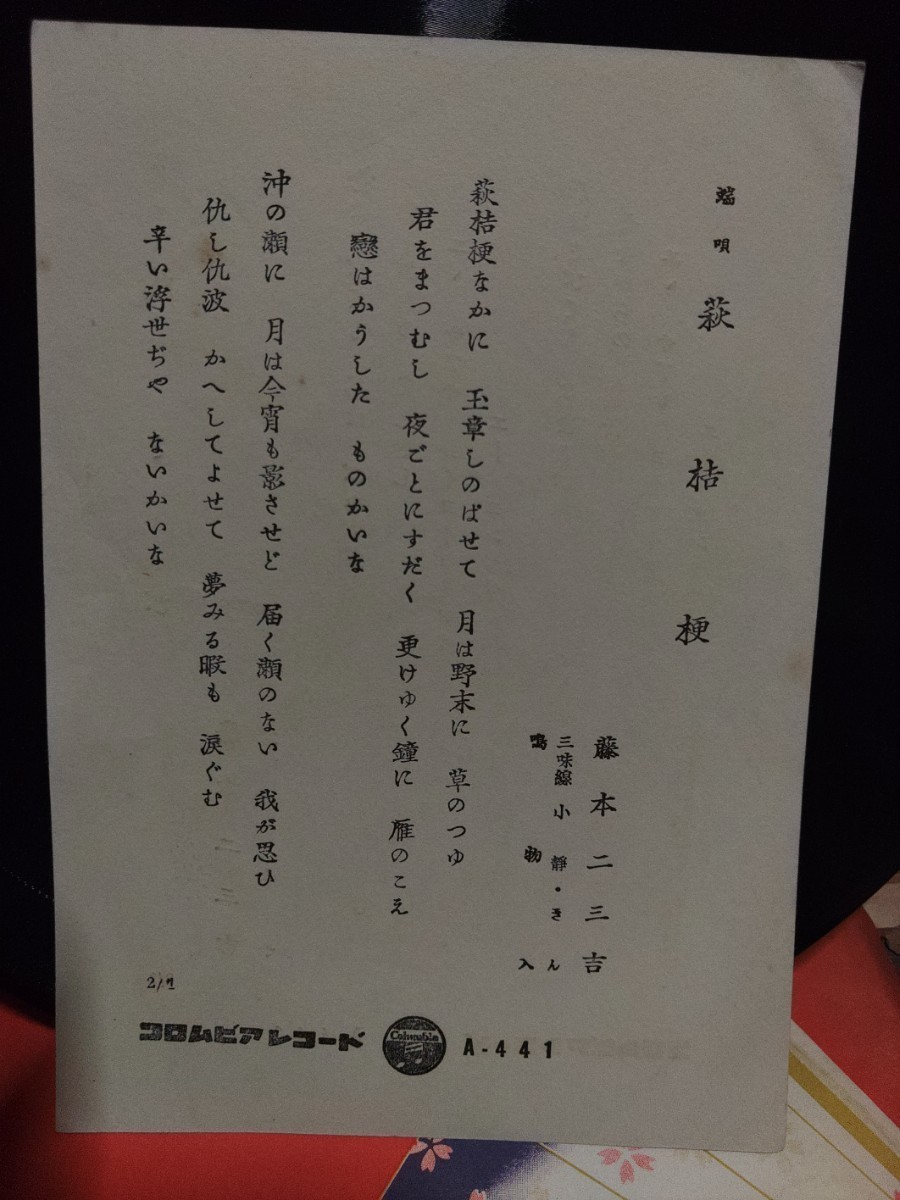 端唄 萩桔梗
藤本二三吉
三味線 小静・きん
鳴物入
萩桔梗なかに 玉章しのばせて 月は野末に 草のつゆ
君をまつむし 夜ごとにすだく 更けゆく鐘に 雁のこえ
戀はかうした ものかいな
沖の瀬に 月は今宵も影させど 届く瀬のない 我が思ひ
仇し仇波 かへしてよせて 夢みる暇も 涙ぐむ
辛い浮世ぢや ないかいな
コロムビアレコード Columbia A-441